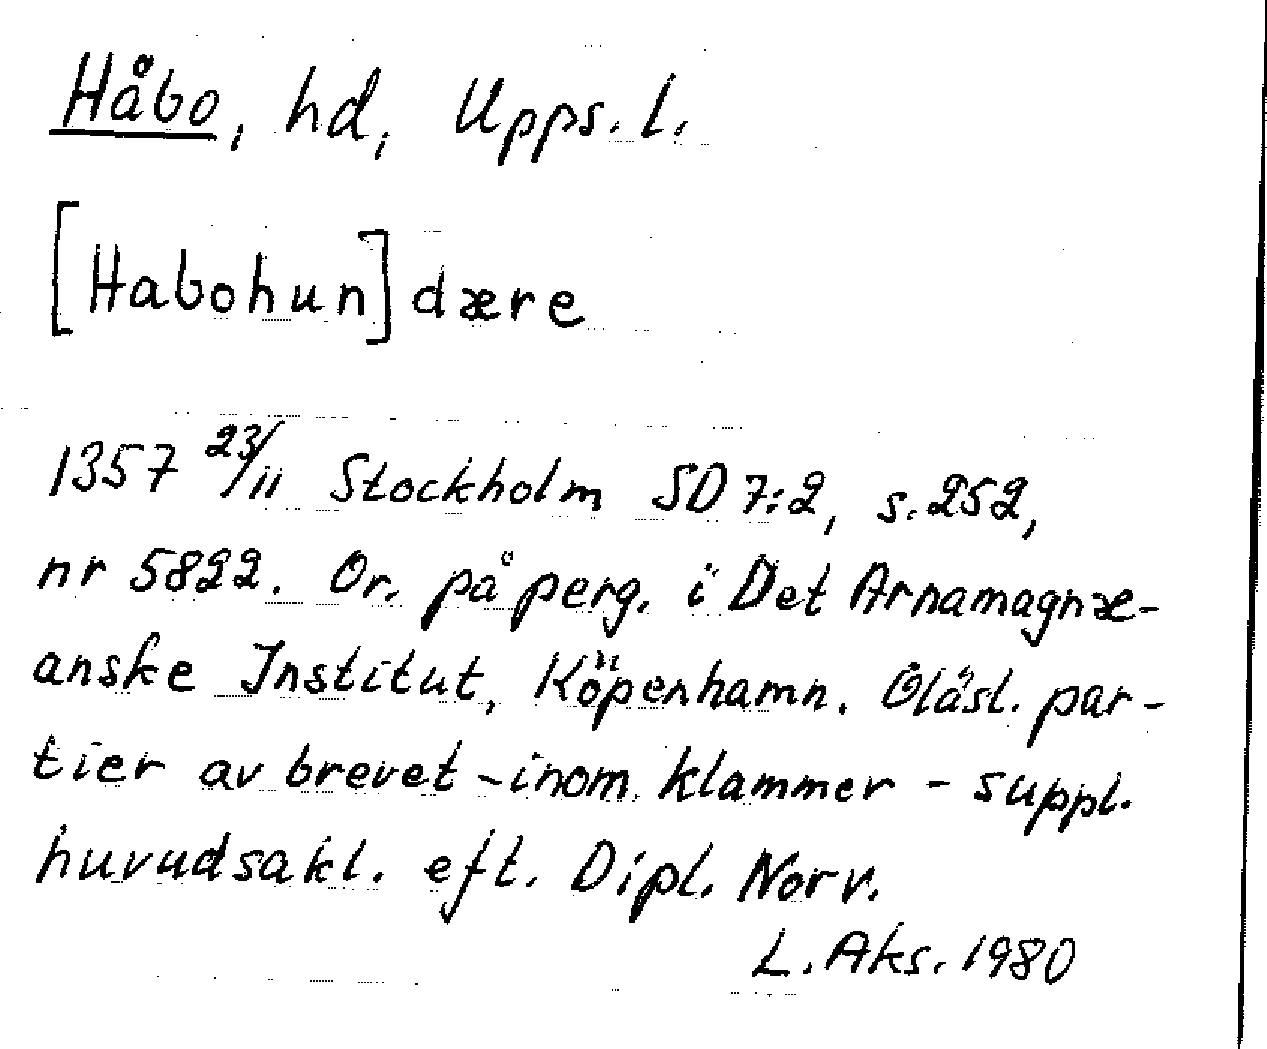 Håbo, hd, Upps. l.
[Habohun]dære
1357 23/11 Stockholm SD 7:2, s. 252,
nr 5822. Or. på perg. i Det Arnamagnæ-
anske Institut, Köpenhamn. Oläsl. par-
tier av brevet - inom klammer - suppl.
huvudsakl. eft. Dipl. Norv.
L. Aks. 1980